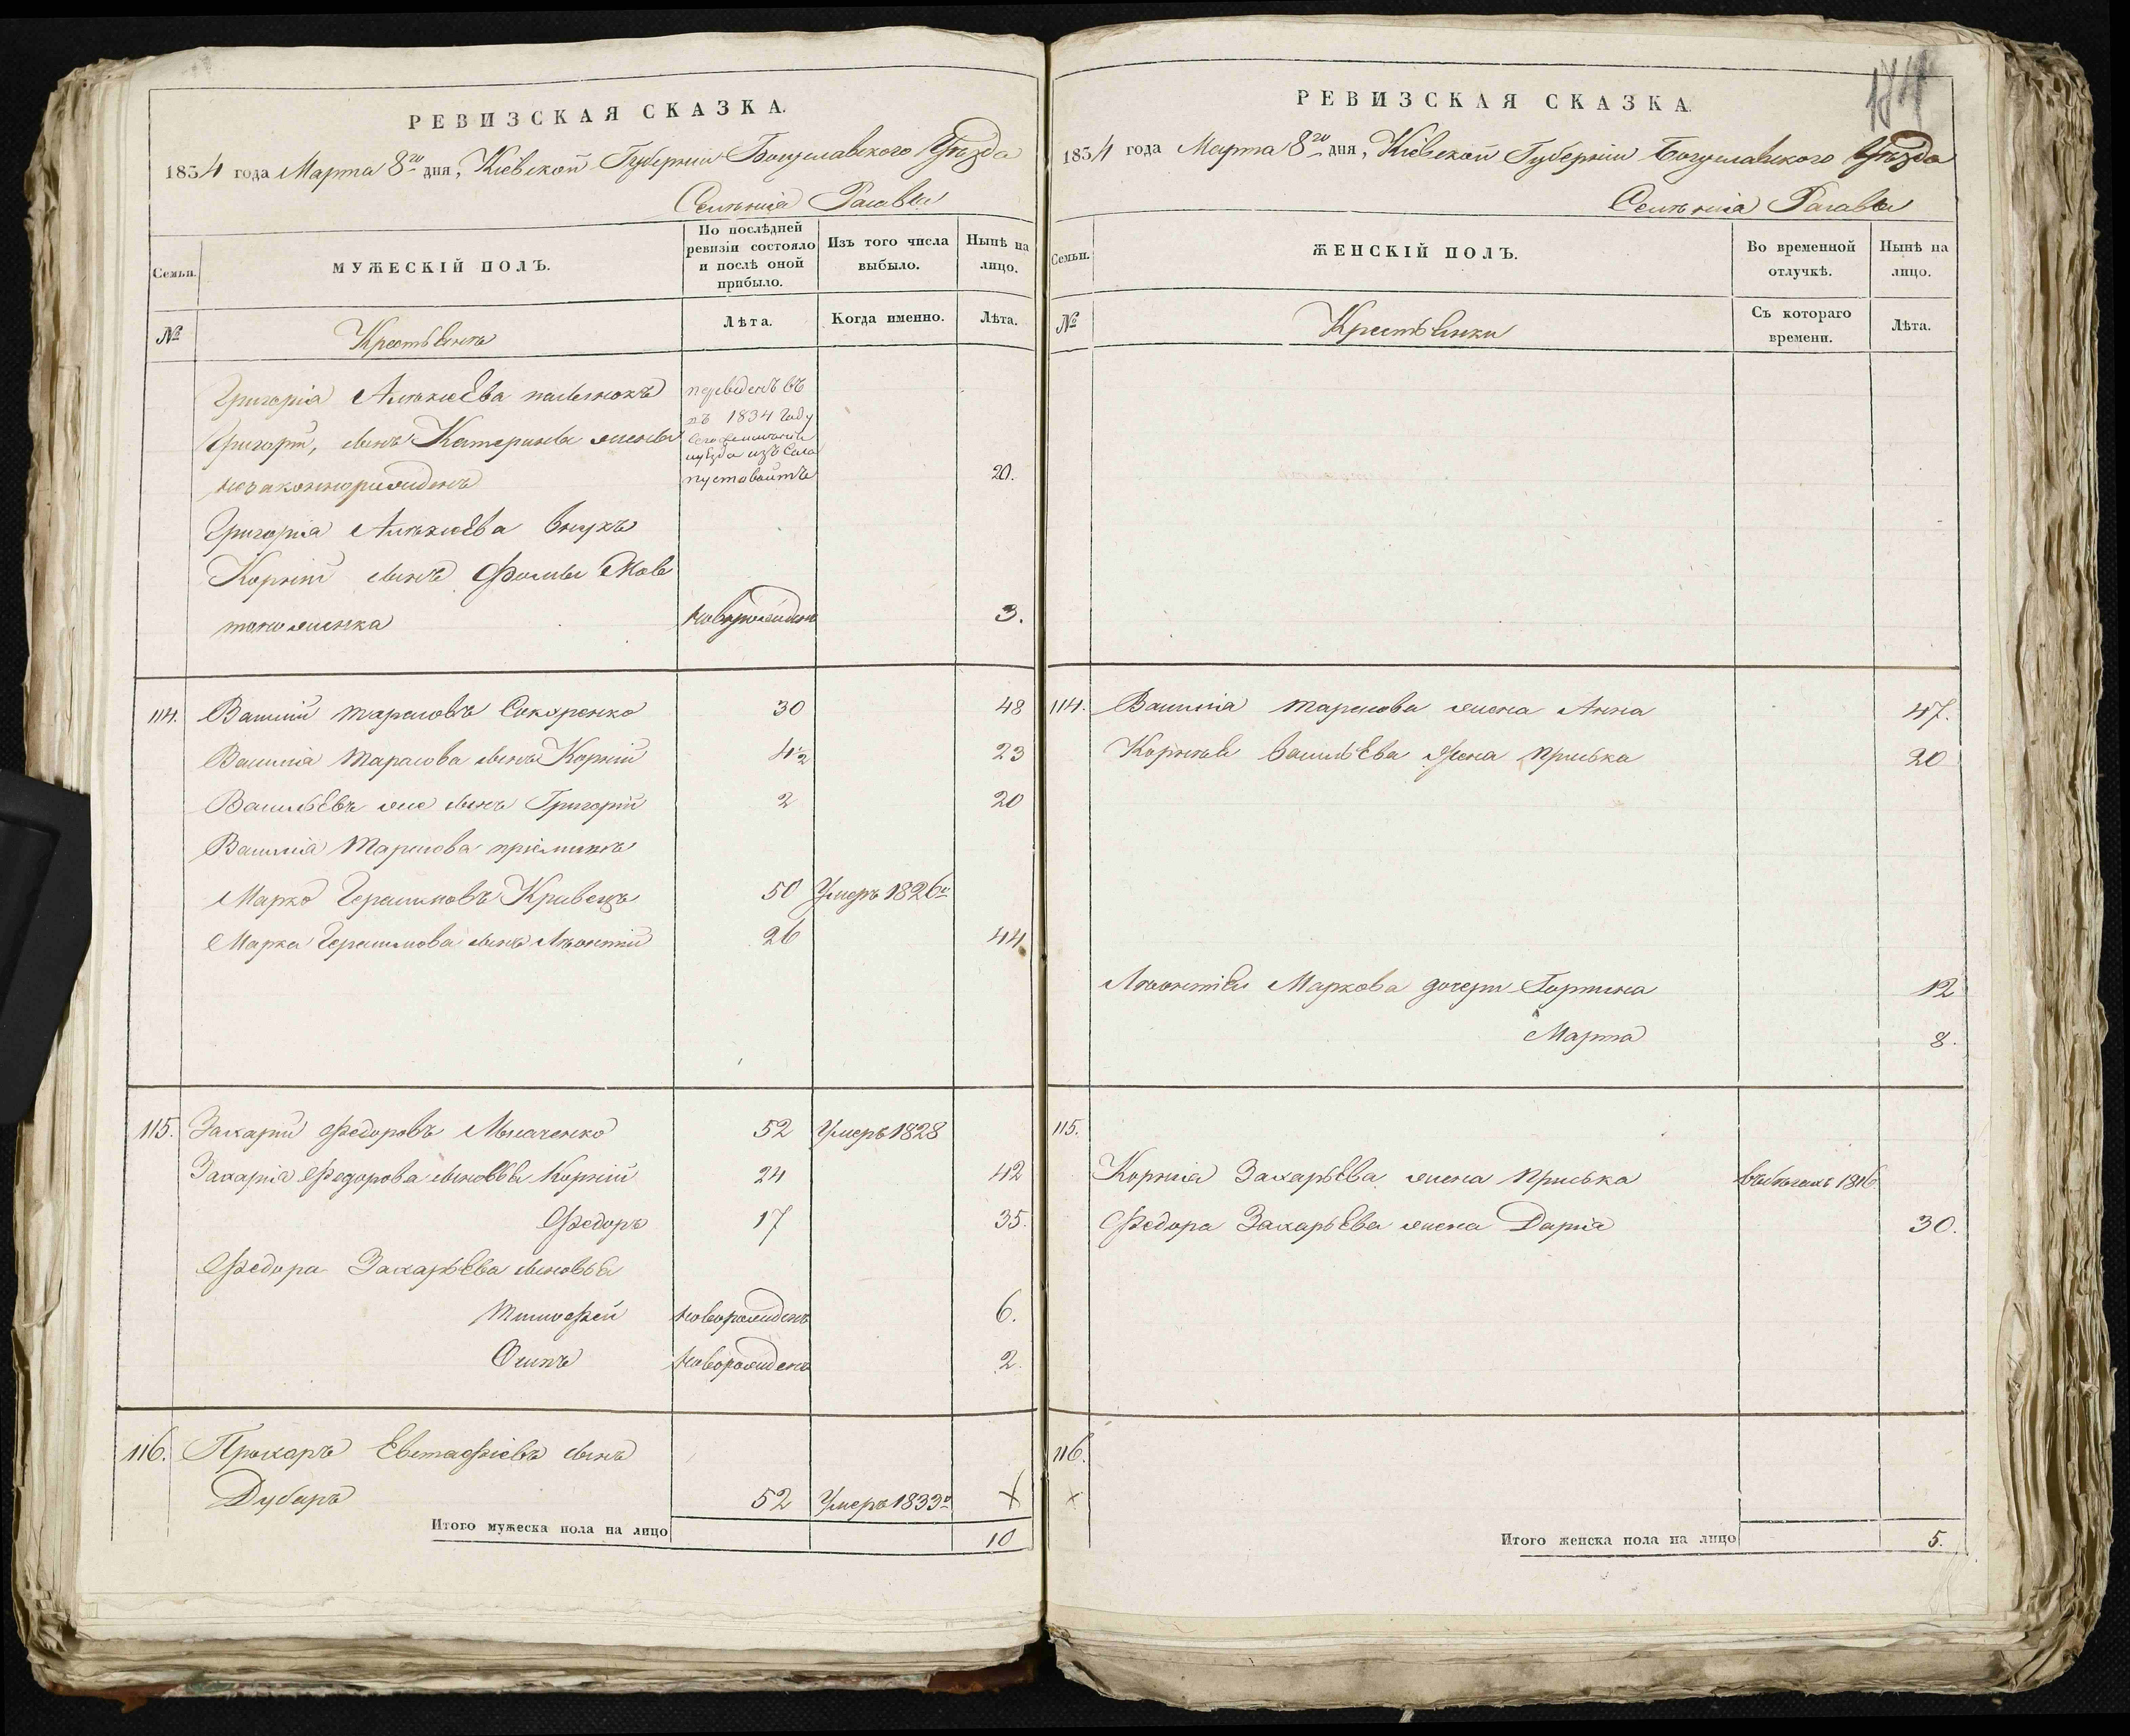 184
РЕВИЗСКАЯ СКАЗКА.
1834 года Марта 8го дня, Кіевской Губерніи Богуславского Уѣзда
Селенія Расавы
Семьи.
МУЖЕСКІЙ ПОЛЪ.
По послѣдней ревизіи состояло и послѣ оной прибыло.
Изъ того числа выбыло.
Нынѣ на лицо.
№
Крестьянъ
Лѣта.
Когда именно.
Лѣта.
Григорія Алексѣева
переведенъ въ
въ 1834 году
Григорій, сынъ Катерины жены
уѣзда изъ села
незаконнорожденъ
20.
Григорія Алексѣева внукъ
Корній сынъ Фомы
новорожденъ 3.
114. Василій Тарасовъ Сокиренко 30 48
Василія Тарасова сынъ Корній 4½ 23
Васильевъ же сынъ Григорій 2 20
Василія Тарасова пріемышъ
Марко Герасимовъ Кравецъ 50 Умеръ 1826го
Марка Герасимова сынъ Леонтій 26 44
115. Захарій Федоровъ 52 Умеръ 1828
Захарія Федорова сыновья Корній 24 42
Федоръ 17 35.
Федора Захарьева сыновья
Тимофей новорожденъ 6.
Осипъ новорожденъ 2.
116. Прохоръ Евстафіевъ сынъ
52 Умеръ 1833го ×
Итого мужеска пола на лицо 10
РЕВИЗСКАЯ СКАЗКА.
1834 года Марта 8го дня, Кіевской Губерніи Богуславского Уѣзда
Селенія Расавы
Семьи.
ЖЕНСКІЙ ПОЛЪ.
Во временной отлучкѣ.
Нынѣ на лицо.
№
Крестьянки
Съ котораго времени.
Лѣта.
114. Василія Тарасова жена Анна 47.
Корнія Васильева жена Приська 20
Леонтія Маркова дочери Горпина 12
Марта 8.
115.
Корнія Захарьева жена Приська
Федора Захарьева жена Дарія 30.
116.
×
Итого женска пола на лицо 5.